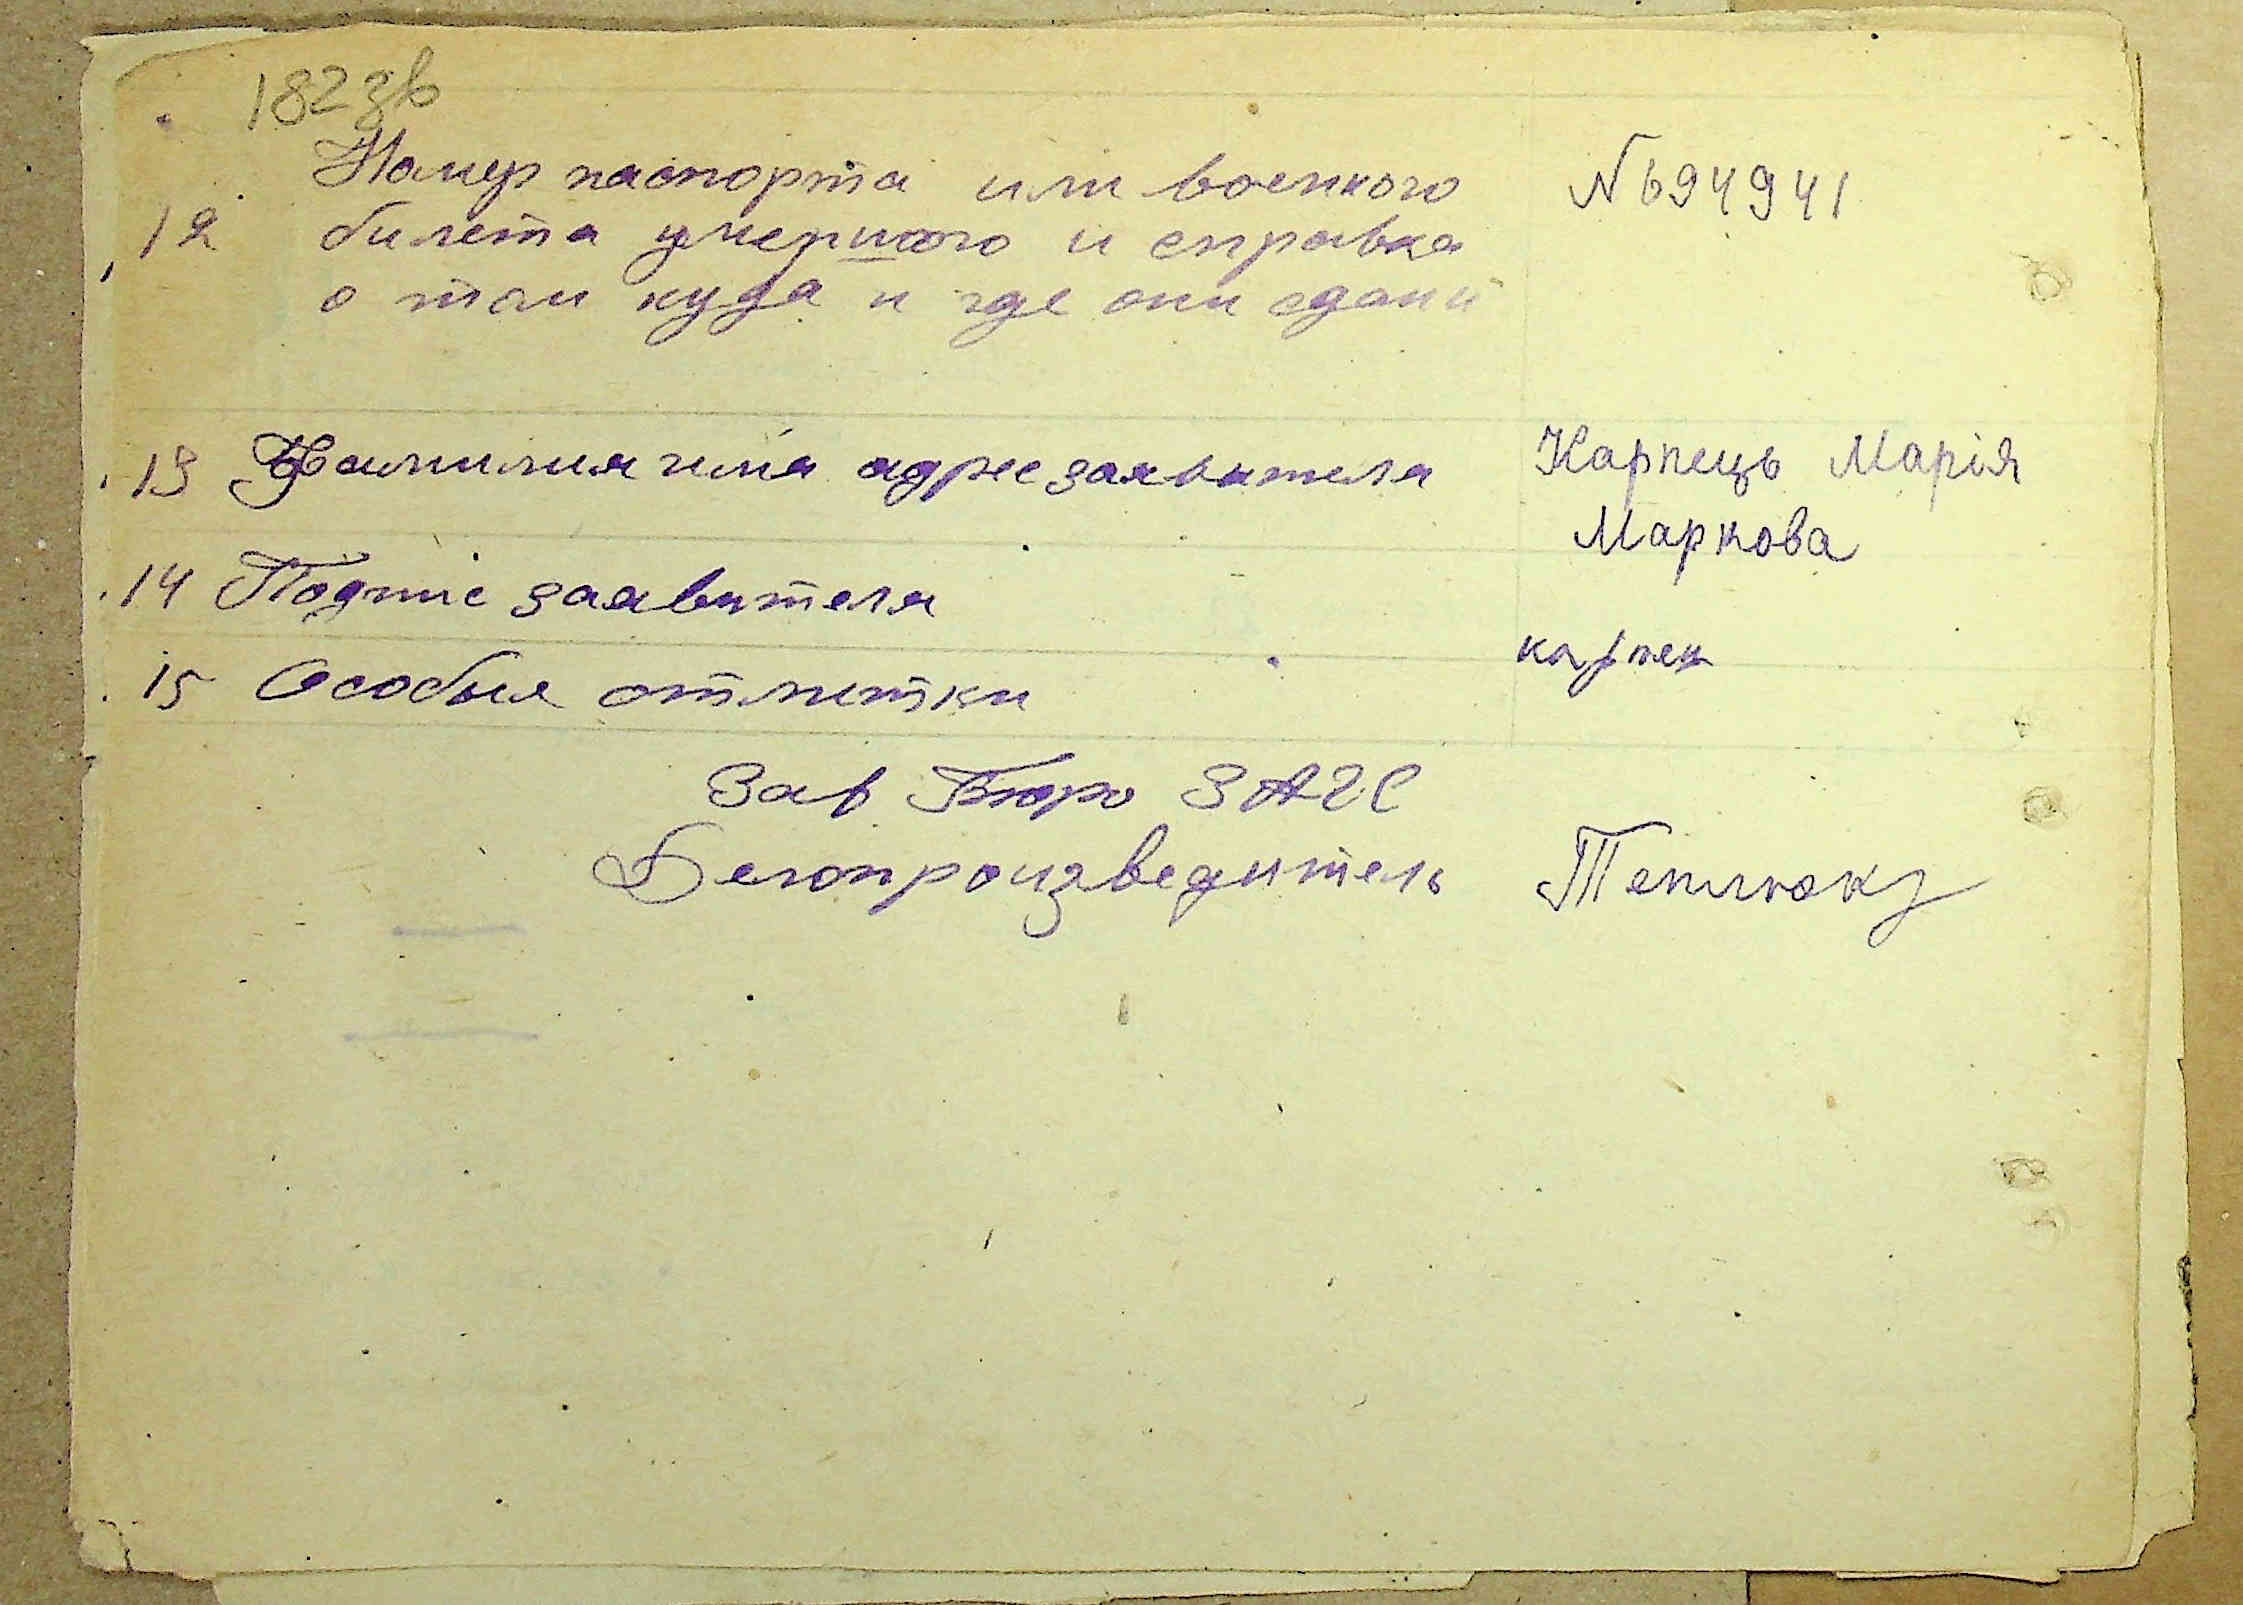 182 зв
Намер паспорта или военного № 694941
12 билета умершого и справка
о том куда и где они сдани
13 Фамилия имя адрес заявителя Карпець Марія
Маркова
14 Подпис заявителя
карпец
15 Особые отметки
Зав Бюро ЗАГС
Делопроизведитель